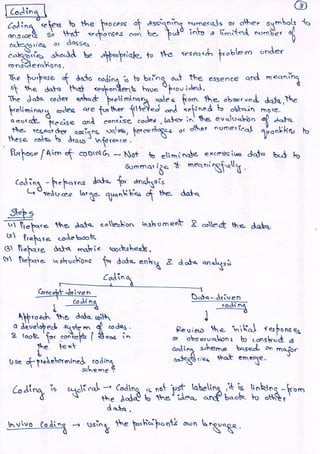 ③
Coding
Coding refers to the process of assigning numerals or other symbols to
answers so that responses can be put into a limited number of
categories or classes.
categories should be appropriate to the research problem under
considerations.
The purpose of data coding is to bring out the essence and meaning
of the data that respondents have provided.
The data coder extract preliminary codes from the observed data, the
preliminary codes are further filtered and refined to obtain more
accurate precise and concise codes, later in the evaluation of data
the researcher assigns values, percentages or other numerical quantities to
these codes to draw inference.
Purpose/Aim of CODING – Not to eliminate excessive data but to
Summarize it meaningfully.
Coding – prepares data for analysis
reduces large quantities of the data
Steps
(1) Prepare the data collection instrument & collect the data
(2) Prepare codebook
(3) Prepare data matrix worksheets.
(4) Prepare instructions for data entry & data analysis
Coding
Concept-driven coding
Data-driven coding
Approach the data with
a developed system of codes.
& look for concepts / ideas in
the text
Use of predetermined coding
scheme
Review the initial responses
or observations to construct a
coding scheme based on major
categories that emerge.
Coding is cyclical → Coding is not just labeling, it is linking – from
the data to the idea and back to other
data.
Invivo Coding → using the participant's own language.